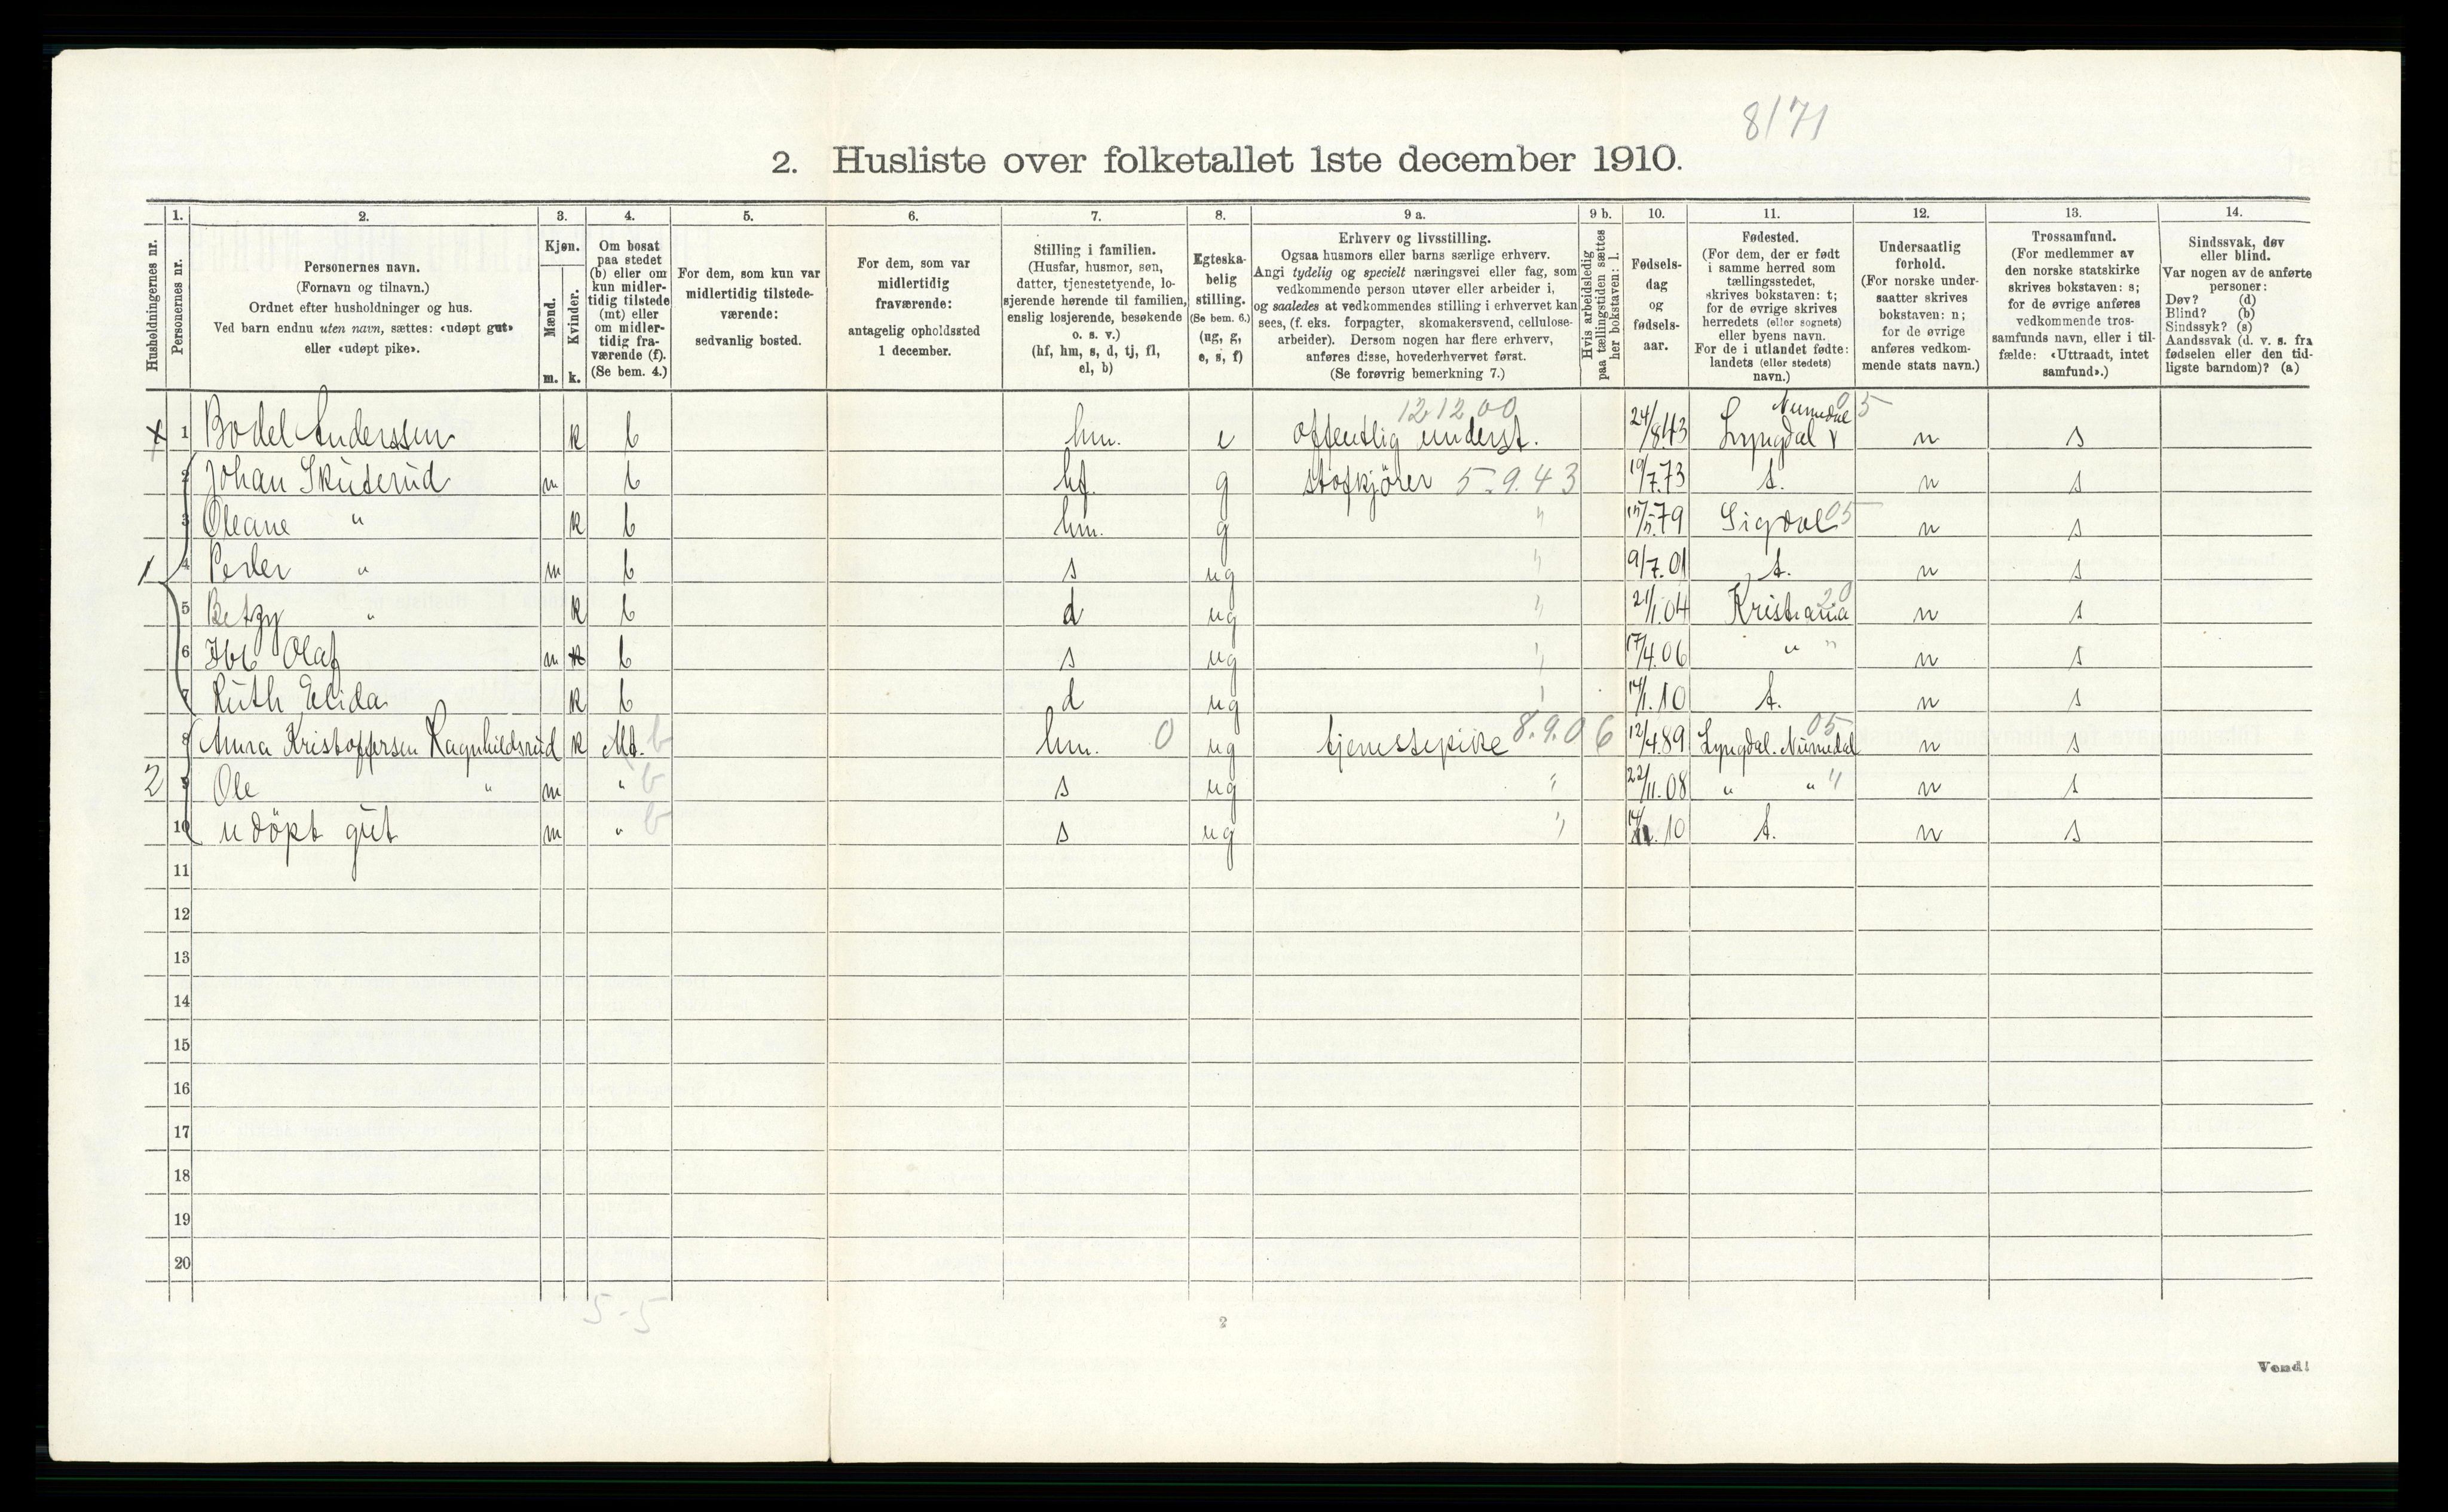 8/71
2. Husliste over folketallet 1ste december 1910.
1. 2. 3. 4. 5. 6. 7. 8. 9 a. 9 b. 10. 11. 12. 13. 14.
Husholdningernes nr.
Personernes nr.
Personernes navn.
(Fornavn og tilnavn.)
Ordnet efter husholdninger og hus.
Ved barn endnu uten navn, sættes: «udøpt gut»
eller «udøpt pike».
Kjøn.
Mænd.
Kvinder.
m. k.
Om bosat
paa stedet
(b) eller om
kun midler-
tidig tilstede
(mt) eller
om midler-
tidig fra-
værende (f).
(Se bem. 4.)
For dem, som kun var
midlertidig tilstede-
værende:
sedvanlig bosted.
For dem, som var
midlertidig
fraværende:
antagelig opholdssted
1 december.
Stilling i familien.
(Husfar, husmor, søn,
datter, tjenestetyende, lo-
sjerende hørende til familien,
enslig losjerende, besøkende
o. s. v.)
(hf, hm, s, d, tj, fl,
el, b)
Egteska-
belig
stilling.
(Se bem. 6.)
(ug, g,
e, s, f)
Erhverv og livsstilling.
Ogsaa husmors eller barns særlige erhverv.
Angi tydelig og specielt næringsvei eller fag, som
vedkommende person utøver eller arbeider i,
og saaledes at vedkommendes stilling i erhvervet kan
sees, (f. eks. forpagter, skomakersvend, cellulose-
arbeider). Dersom nogen har flere erhverv,
anføres disse, hovederhvervet først.
(Se forøvrig bemerkning 7.)
Hvis arbeidsledig
paa tællingstiden sættes
her bokstaven: l.
Fødsels-
dag
og
fødsels-
aar.
Fødested.
(For dem, der er født
i samme herred som
tællingsstedet,
skrives bokstaven: t;
for de øvrige skrives
herredets (eller sognets)
eller byens navn.
For de i utlandet fødte:
landets (eller stedets)
navn.)
Undersaatlig
forhold.
(For norske under-
saatter skrives
bokstaven: n;
for de øvrige
anføres vedkom-
mende stats navn.)
Trossamfund.
(For medlemmer av
den norske statskirke
skrives bokstaven: s;
for de øvrige anføres
vedkommende tros-
samfunds navn, eller i til-
fælde: «Uttraadt, intet
samfund».)
Sindssvak, døv
eller blind.
Var nogen av de anførte
personer:
Døv? (d)
Blind? (b)
Sindssyk? (s)
Aandssvak (d. v. s. fra
fødselen eller den tid-
ligste barndom)? (a)
12 12 00 Numedal 05
x 1 Bodel Anderssen k b hm. e offentlig underst. 24/8 43 Lyngdal n s
2 Johan Skuterud m b hf. g stofkjörer 5.9.43 19/7.73 t. n s
3 Oleane " k b hm. g " 15/5.79 Sigdal 05 n s
1 4 Peder " m b s ug " 9/7.01 t. n s
5 Betzy " k b d ug " 21/1.04 Kristiania 20 n s
6 Olaf m k b s ug " 17/4.06 " " n s
7 Ruth Elida k b d ug " 14/1.10 t. n s
8 Anna Kristoffersen Ragnhildsrud k Mt. b hm. 0 ug tjenestepike 8.9.06 12/4.89 Lyngdal. Numedal 05 n s
2 9 Ole " m " b s ug " 22/11.08 " " " n s
10 udöpt gut m " b s ug " 14/11.10 t. n s
11
12
13
14
15
16
17
18
19
20
5-5
2
Vend!